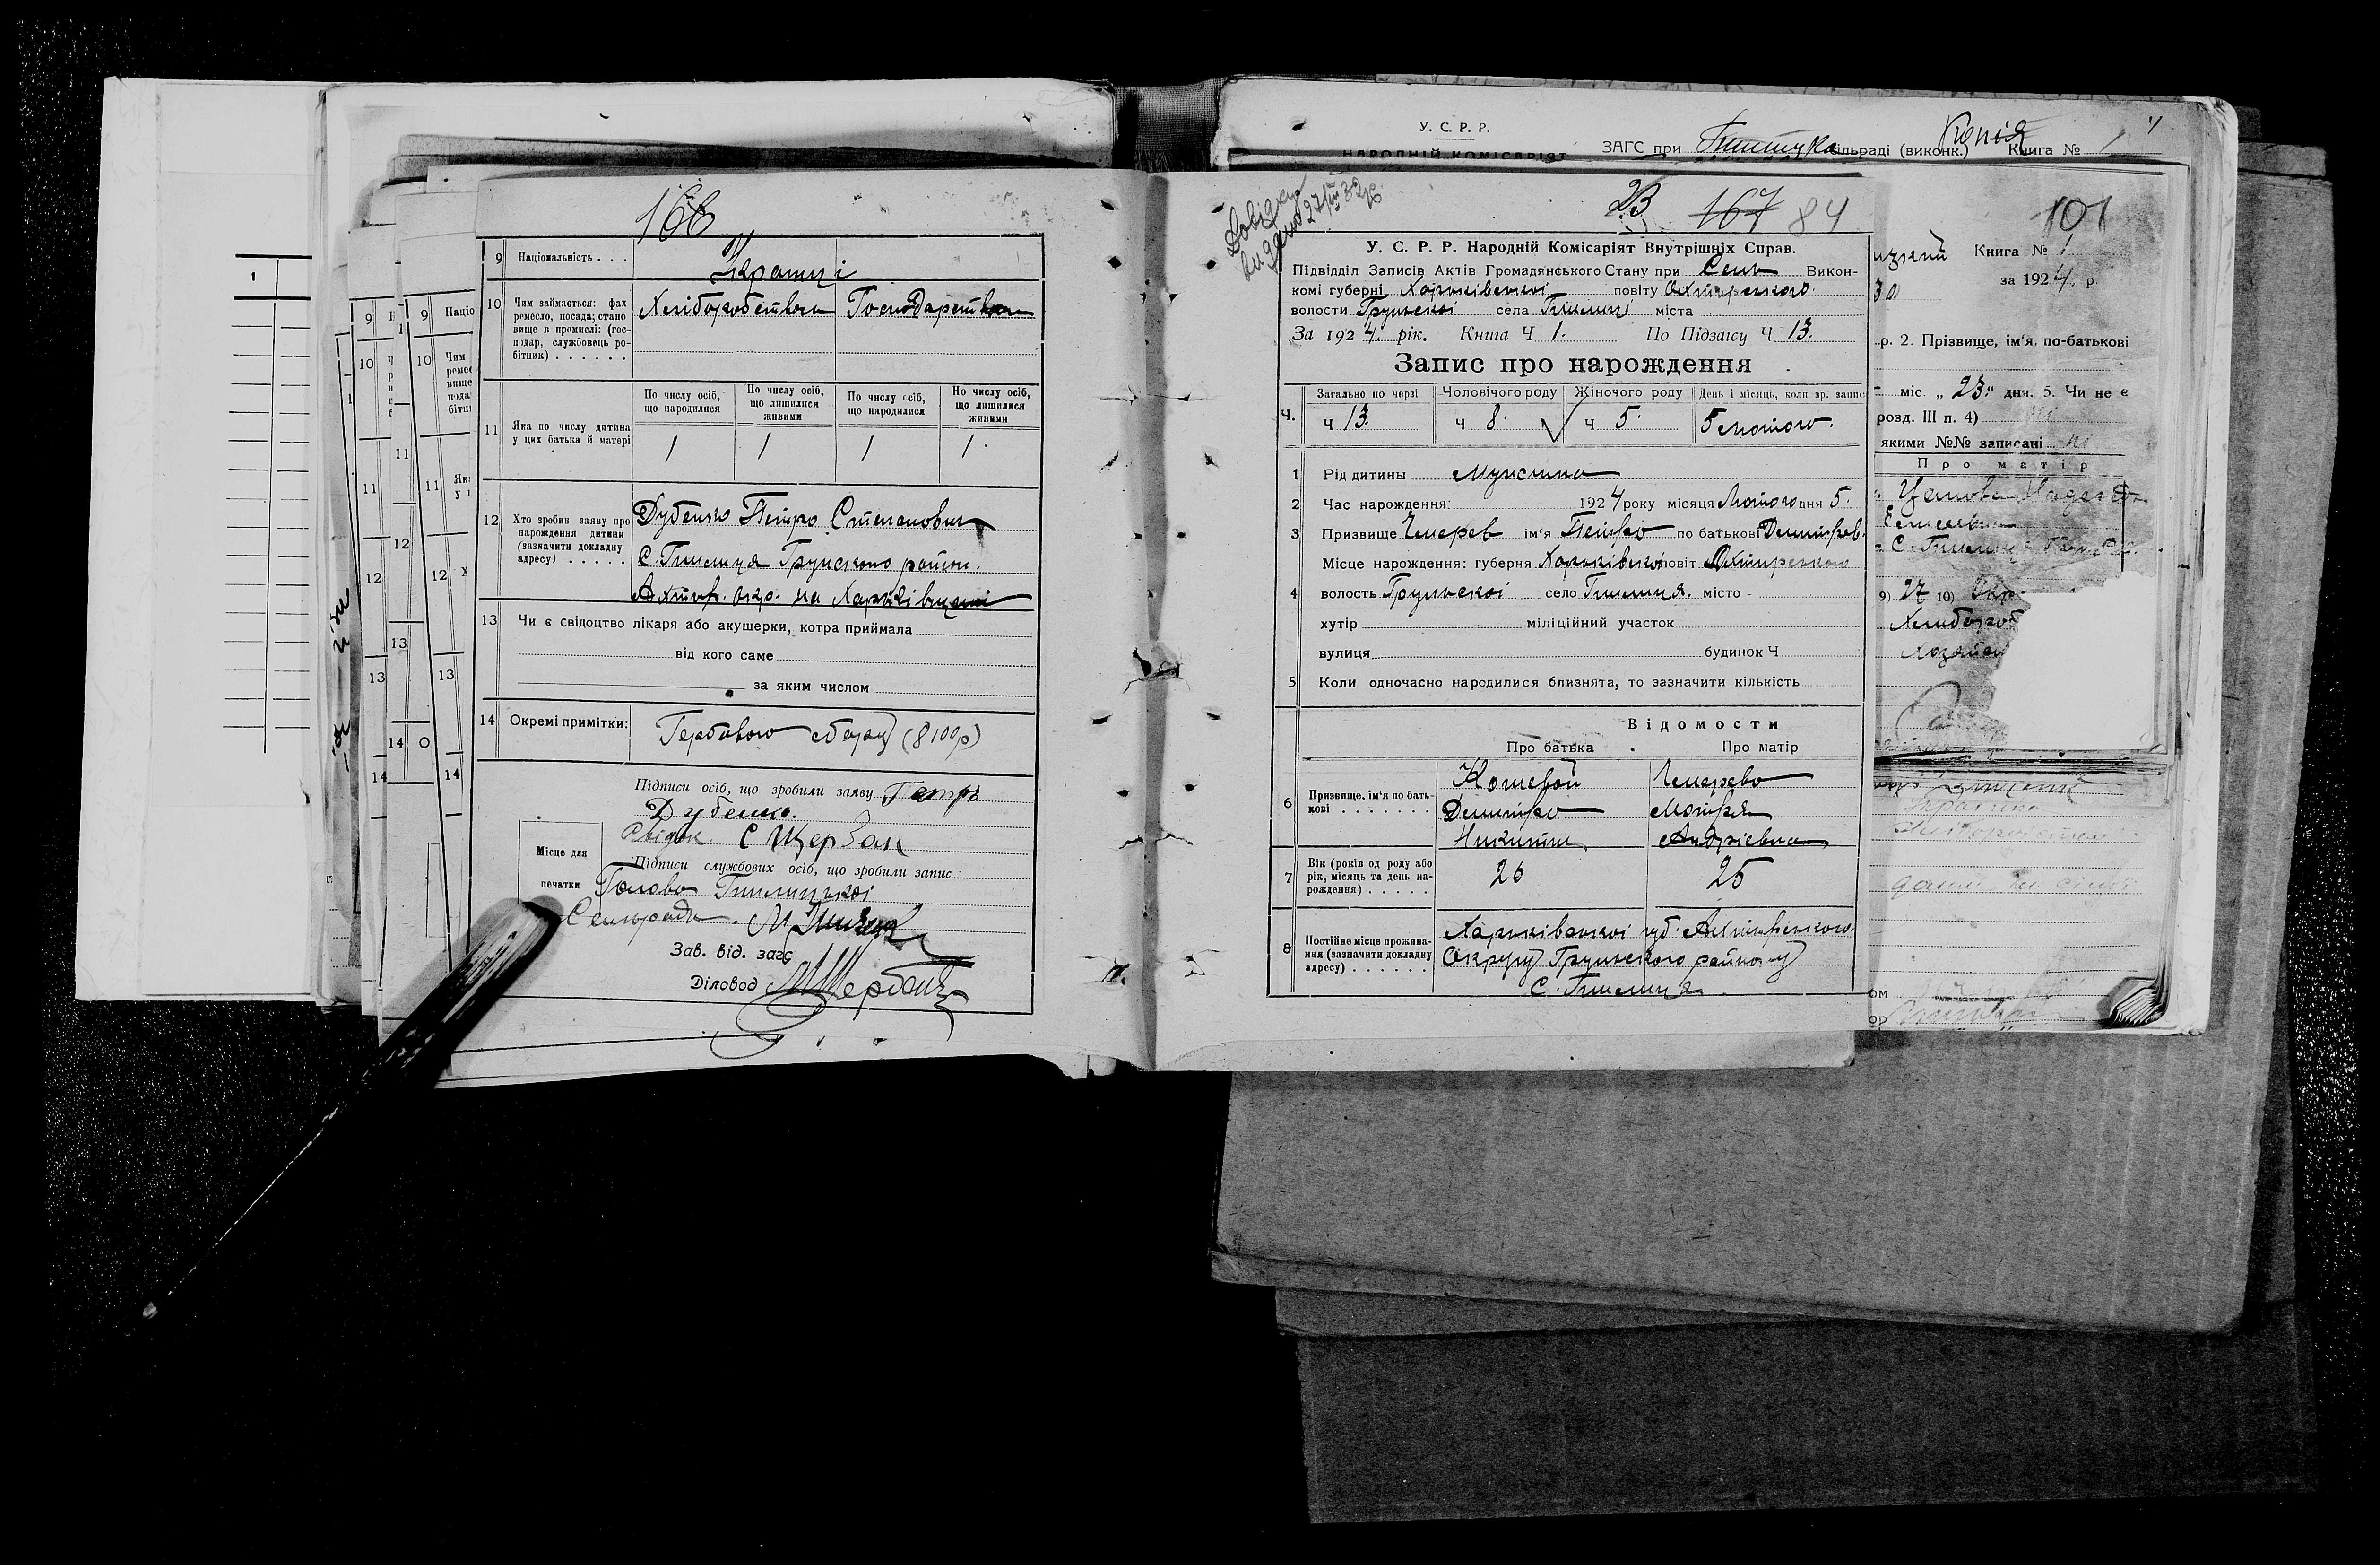 166
9 Національність . . .
Українці
10 Чим займається: фах
ремесло, посада; стано
вище в промислі: (гос-
подар, службовець ро-
бітник) . . . . . .
Хліборобством Господарством
11 Яка по числу дитина
у цих батька й матері
По числу осіб,
що народилися
По числу осіб,
що лишилися
живими
По числу осіб,
що народилися
По числу осіб,
що лишилися
живими
1 1 1 1.
12 Хто зробив заяву про
нарождення дитини
(зазначити докладну
адресу) . . . . .
Дубенко Петро Степанович
С. Гнилиця Грунського район.
Ахтир. окр. на Харківщині
13 Чи є свідоцтво лікаря або акушерки, котра приймала
від кого саме
за яким числом
14 Окремі примітки:
Гербового сбору (8100р)
Підписи осіб, що зробили заяву Петро
Дубенко.
Свідок С Щербак
Місце для
печатки
Підписи службових осіб, що зробили запис
Голова Гнилицької
Сельради.
Зав. від. загс
Діловод
У. С. Р. Р.
НАРОДНІЙ КОМІСАРІЯТ
ЗАГС при сільраді (виконк.) Книга № 1
Копія
Довідку
видано 27/III 32р.
23 167 84
У. С. Р. Р. Народній Комісаріят Внутрішніх Справ.
Підвідділ Записів Актів Громадянського Стану при Сель Викон-
комі губерні Харківської повіту Охтирського.
волости Грунської села Гнилиці міста
За 1924. рік. Книга Ч 1. По Підзагсу Ч 13.
Запис про нарождення
Загально по черзі Чоловічого роду Жіночого роду День і місяць, коли зр. запис
Ч. ч 13. ч 8. ч 5. 5 лютого.
1 Рід дитини Мужчина
2 Час нарождення: 1924 року місяця Лютого дня 5.
3 Призвище Чмерев ім'я Петро по батькові Дмитров.
4 Місце нарождення: губерня Харківської повіт Охтирського
волость Грунської село Гнилиця. місто
хутір міліційний участок
вулиця будинок Ч
5 Коли одночасно народилися близнята, то зазначити кількість
Відомости
Про батька Про матір
6 Призвище, ім'я по бать-
кові . . . . . . .
Кошевой Чмерево
Дмитро Мотря
Никитич Андріевна
7 Вік (років од роду або
рік, місяць та день на-
рождення) . . . . .
26 25
8 Постійне місце прожива-
ння (зазначити докладну
адресу) . . . . . .
Харківської губ. Ахтирського.
Округу Грунського району
С. Гнилиця.
101
Книга № 1
за 1924 р.
р. 2. Прізвище, ім'я, по-батькові
міс. „ 23" дня. 5. Чи не є
розд. III п. 4)
якими №№ записані
Про матір
9) 27 10)
Хлибороб